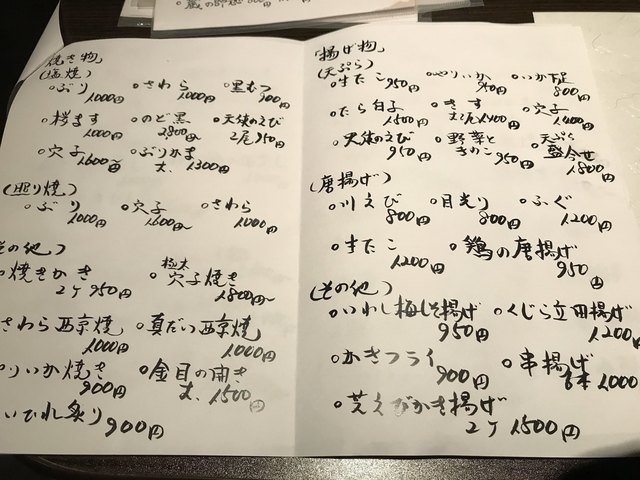 焼き物
(塩焼)
・ぶり 1000円 ・さわら 1000円 ・黒むつ 900円
・桜ます 1000円 ・のど黒 2800〜 ・天使のえび 2尾 950円
・穴子 1600〜 ・ぶりかま 大、1300円
(照り焼)
・ぶり 1000円 ・穴子 1600〜 ・さわら 1000円
その他)
・焼きかき 2ケ 950円 ・極太穴子焼き 1800〜
さわら西京焼 1000円 ・真だい西京焼 1000円
りいか焼き 900円 ・金目の開き 大、1500円
いひれ炙り 900円
揚げ物
(天ぷら)
・生たこ 950円 ・やりいか 950円 ・いか下足 800円
・たら白子 1500円 ・きす 2尾 1400円 ・穴子
・天使のえび 950円 ・野菜ときのこ 950円 ・天ぷら盛合せ 1800円
(唐揚げ)
・川えび 800円 ・目光り 800円 ・ふぐ 1200円
・生たこ 1200円 ・鶏の唐揚げ 950円
(その他)
・いわし梅しそ揚げ 950円 ・くじら立田揚げ 1200円
・かきフライ 900円 ・串揚げ 1000円
・芝えびかき揚げ 2ケ 1500円